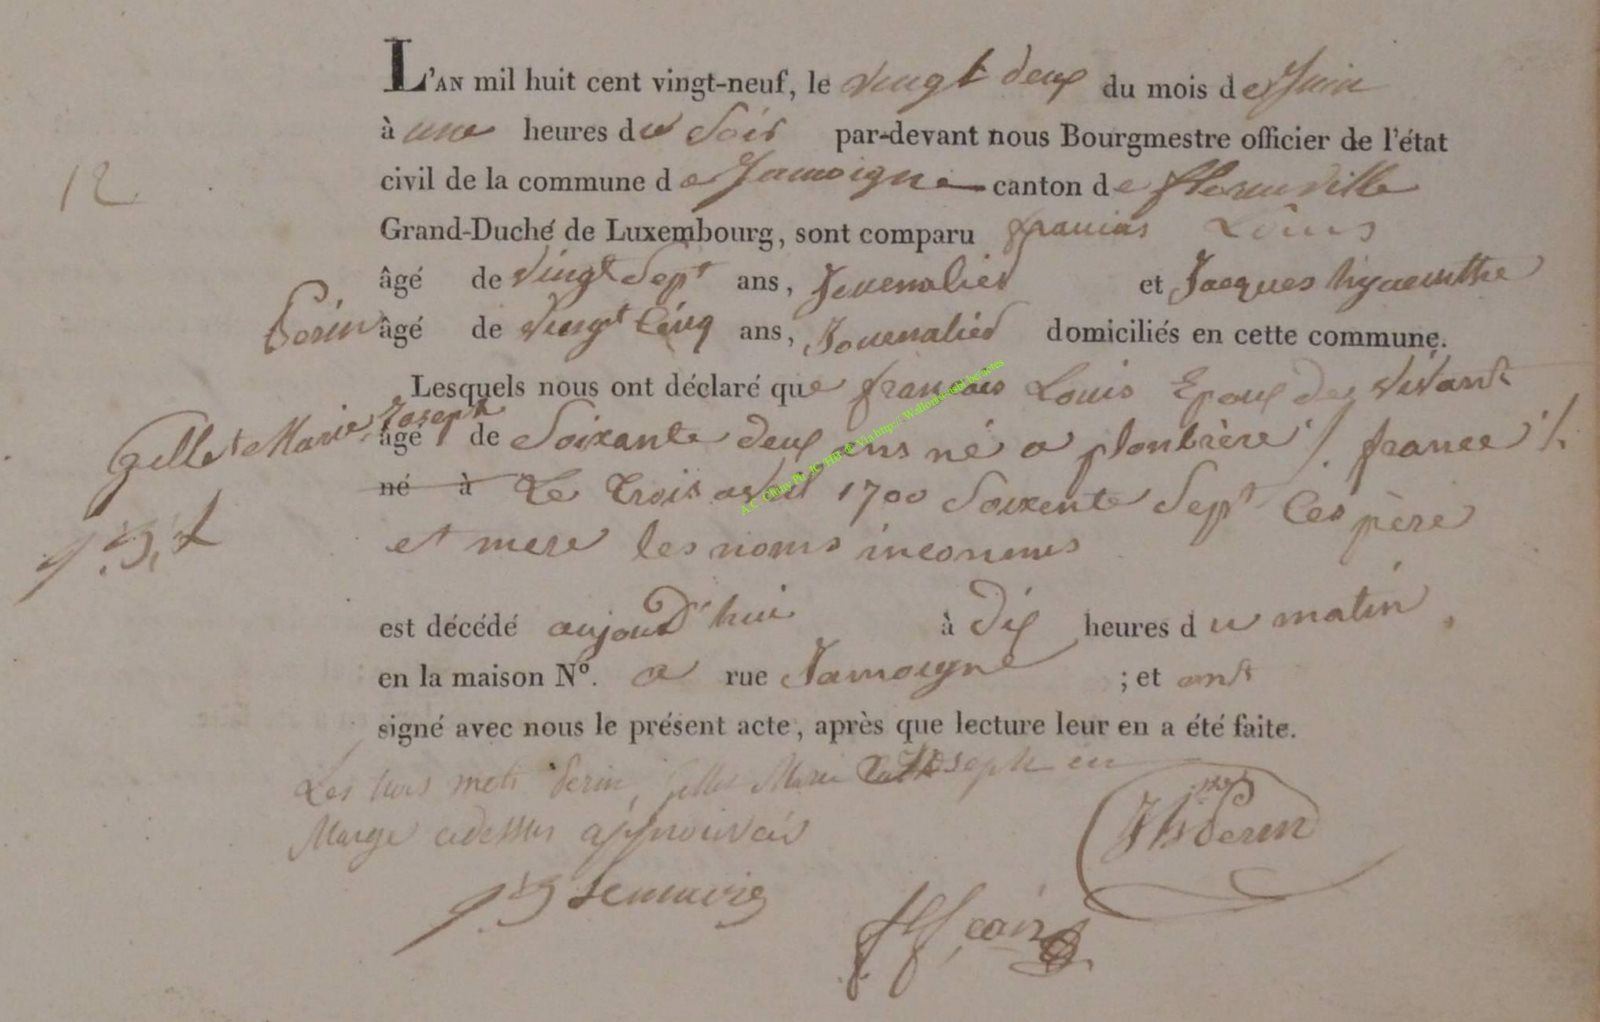 L'AN mil huit cent vingt-neuf, le vingt deux du mois de Juin
à une heures du Soir par-devant nous Bourgmestre officier de l'état
12
civil de la commune de Jamoigne canton de florenville
Grand-Duché de Luxembourg, sont comparu francois Louis
âgé de vingt Sept ans, Jouenalier et Jacques hyacinthe
Perin âgé de vingt Cinq ans, Jouenalier domiciliés en cette commune.
Lesquels nous ont déclaré que francois Louis Epoux de vivant
Gillet Marie Joseph âgé de Soixante deux ans né a plonbière /. france /.
né à Le trois avril 1700 Soixente Sept Ces père
et mere les noms inconnus
est décédé aujourd'hui à dix heures du matin
en la maison N°. a rue Jamoigne ; et ont
signé avec nous le présent acte, après que lecture leur en a été faite.
Les trois mots Perin, Gillet Marie Joseph en
Marge cidessus approuvés
Perin